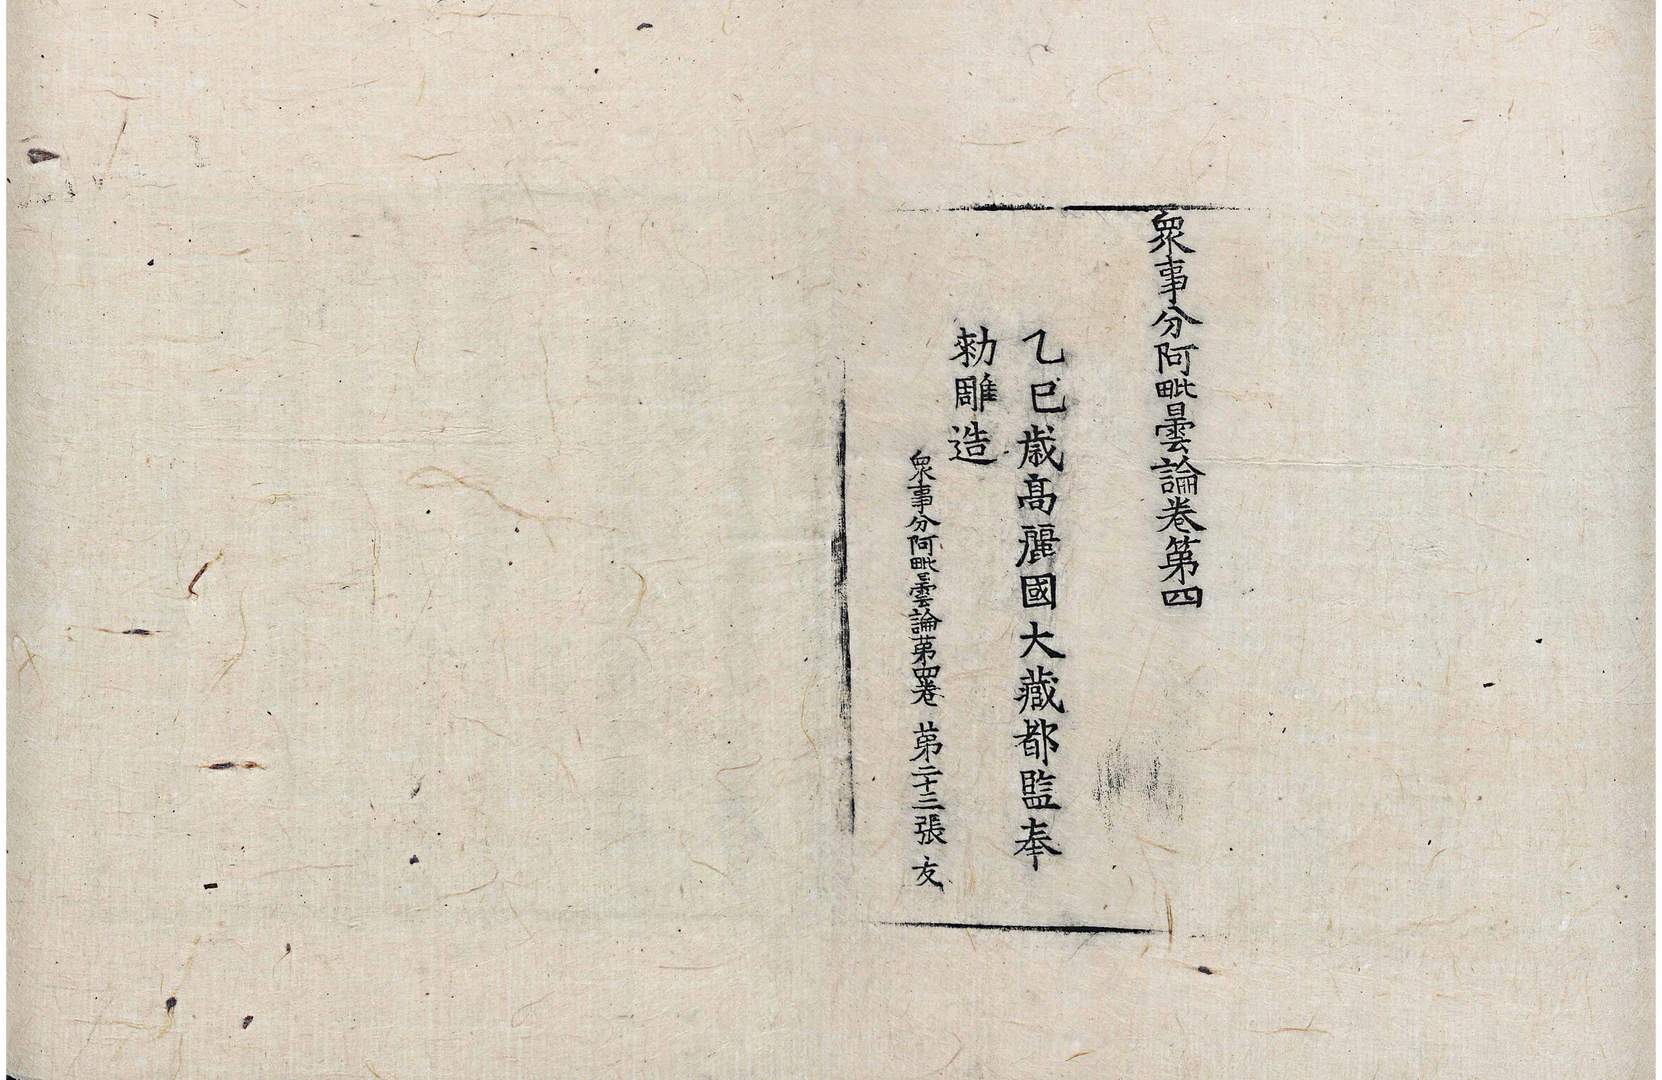 衆事分阿毗曇論卷第四
乙巳歲高麗國大藏都監奉
勅雕造
衆事分阿毗曇論苐四卷 苐二十三張 友